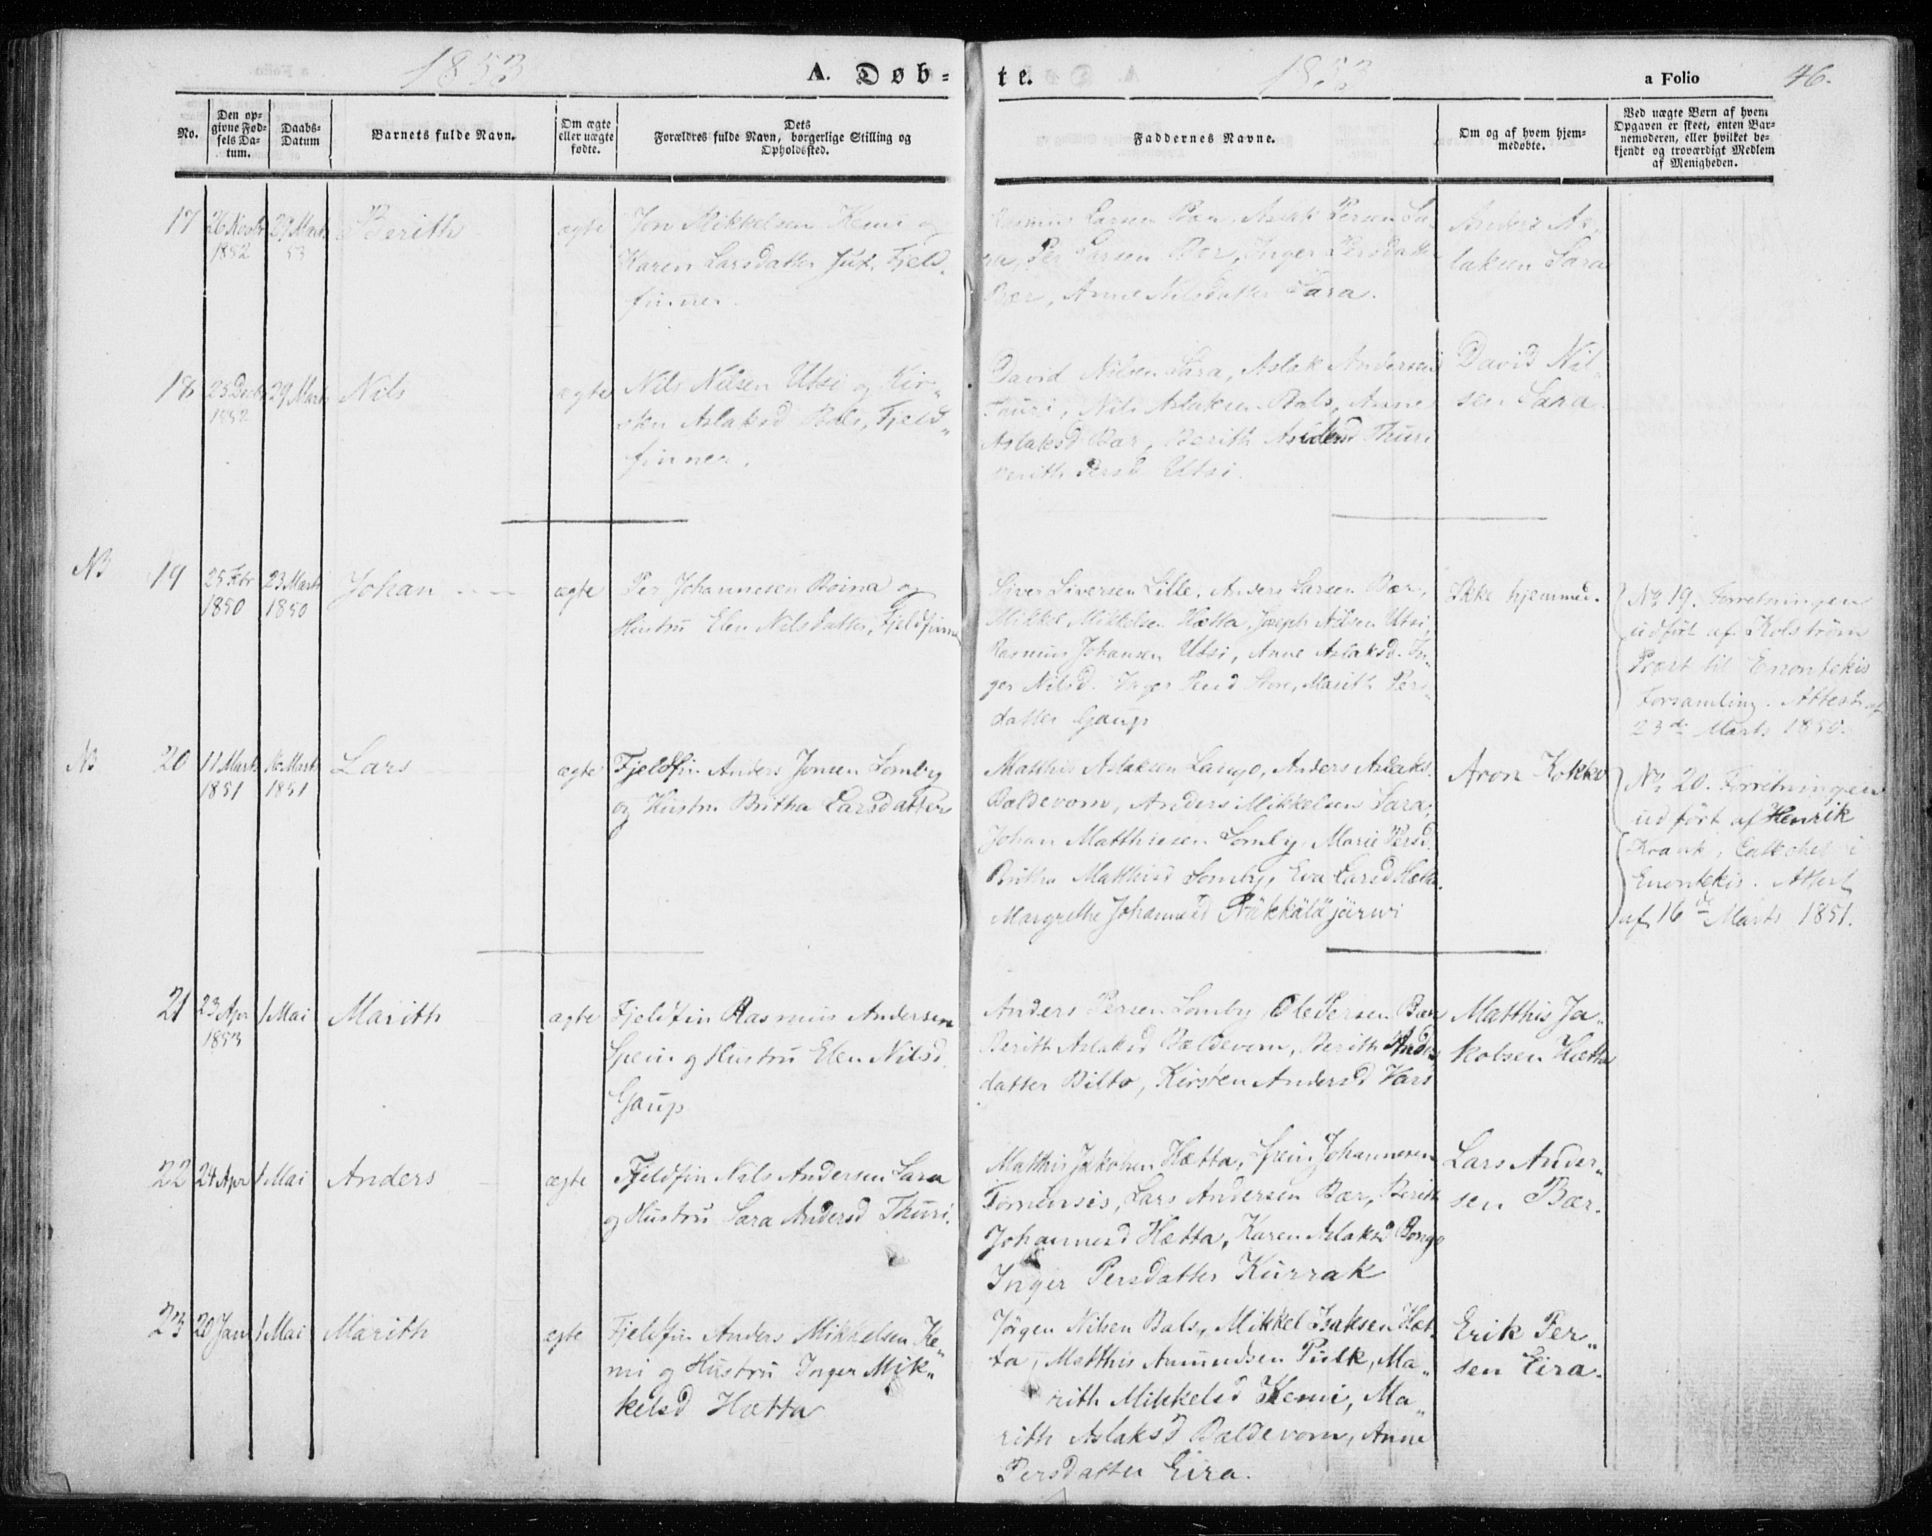 1853
A. Døb-
te.
1853
a Folio
46.
No.
Den op-
givne Fød-
sels Da-
tum.
Daabs-
Datum
Barnets fulde Navn.
Om ægte
eller uægte
fødte.
Dets
Forældres fulde Navn, borgerlige Stilling og
Opholdssted.
Faddernes Navne.
Om og af hvem hjem-
medøbte.
Ved uægte Børn af hvem
Opgaven er skeet, enten Bar-
nemoderen, eller hvilket be-
kjendt og troværdigt Medlem
af Menigheden.
17
26 Novbr
1852
29 Marts
53
Berith
ægte
Jon Mikkelsen Kemi og
Karen Larsdatter Jux, Fjeld-
finner.
Rasmus Larsen Bær, Aslak Persen Sa-
ra, Per Larsen Bær, Inger Persdatter
Bær, Anne Nilsdatter Sara.
Anders As-
laksen Sara
18
25 Decbr
1852
29 Marts
Nils
ægte
Nils Nilsen Utsi og Kir-
sten Aslaksd Bals, Fjeld-
finner.
David Nilsen Sara, Aslak Andersen
Thuri, Nils Aslaksen Bals, Anne
Aslaksd Bær, Berith Andersd Thuri
Berith Persd Utsi.
David Nil-
sen Sara
NB
19
25 Febr
1850
23 Marts
1850
Johan
ægte
Per Johannesen Boina og
Hustru Elen Nilsdatter, Fjeldfinne
Siver Siversen Lille, Anders Larsen Bær,
Mikkel Mikkelsen Hætta, Joseph Nilsen Utsi,
Rasmus Johansen Utsi, Anne Aslaksd. In-
ger Nilsd. Inger Persd Store, Marith Pers-
datter Gaup
Ikke hjemmed.
No 19. Forretningen
udført af Kolström
Præst til Enontekis
Forsamling. Attest af
23de Marts 1850.
NB
20
11 Marts
1851
16 Marts
1851
Lars
ægte
Fjeldfin Anders Jonsen Somby
og Hustru Britha Larsdatter
Matthis Aslaksen Lango, Anders Aslaks.
Baldevom, Anders Mikkelsen Sara,
Johan Matthiesen Somby, Marie Persd.
Britha Matthisd Somby, Eva Larsd Hætta.
Margrethe Johannesd Näkkäläjärwi
Aron Kokko
No 20. Forretningen
udført af Henrik
Kraak, Catechet i
Enontekis. Attest
af 16de Marts 1851.
21
23 Apr
1853
1 Mai
Marith
ægte
Fjeldfin Rasmus Andersen
Spein og Hustru Elen Nilsd.
Gaup
Anders Persen Somby, Ole Persen Bær
Berith Aslaksd Baldevom, Berith Anders
datter Bilto, Kirsten Andersd Vars
Matthis Ja-
kobsen Hætta
22
24 Apr
1 Mai
Anders
ægte
Fjeldfin Nils Andersen Sara
og Hustru Sara Andersd Thuri.
Matthis Jakobsen Hætta, Spein Johannesen
Tornensis, Lars Andersen Bær, Berith
Johannesd Hætta, Karen Aslaksd Bongo
Inger Persdatter Kurrak
Lars Ander-
sen Bær.
23
20 Jan
1 Mai
Marith
ægte
Fjeldfin Anders Mikkelsen Ke-
mi og Hustru Inger Mik-
kelsd Hætta
Jørgen Nilsen Bals, Mikkel Isaksen Hæt-
ta, Matthis Amundsen Pulk, Ma-
rith Mikkelsd Kemi, Ma-
rith Aslaksd Baldevom, Anne
Persdatter Eira.
Erik Per-
sen Eira.